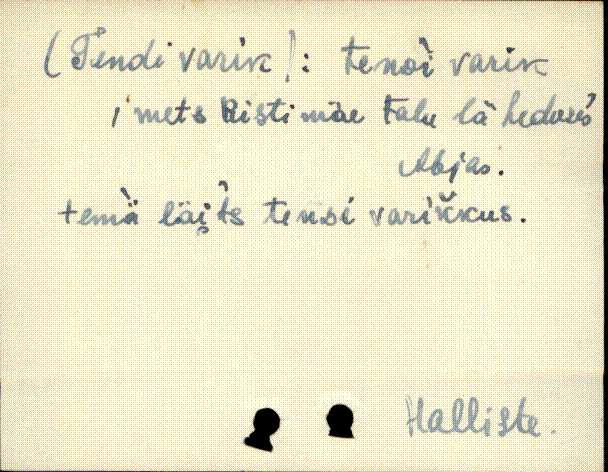 (Tendi varik): tendi varik
, mets Ristimäe talu läheduses
Abjas.
temä läits tendi varikkus.
Halliste.